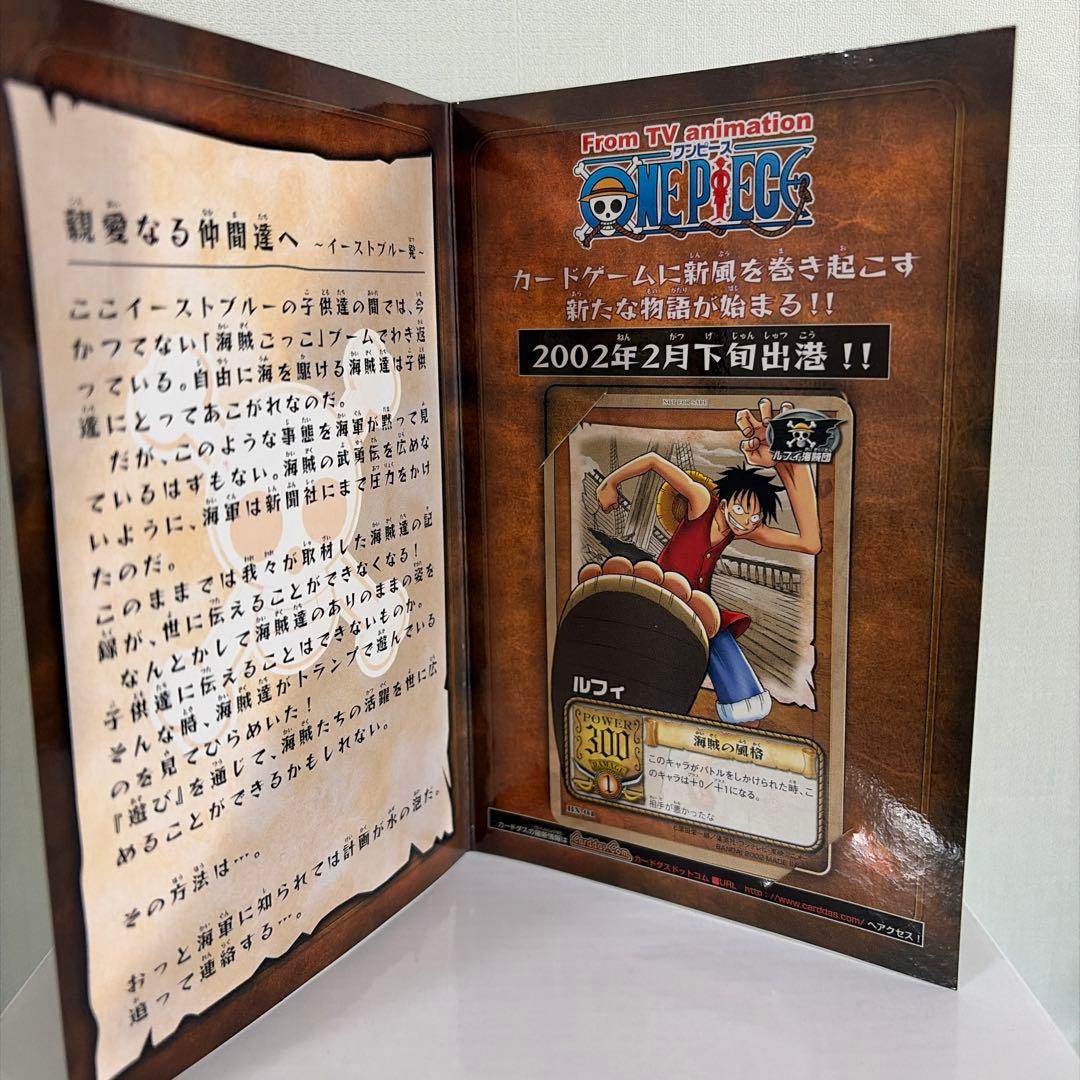 親愛なる仲間達へ ～イーストブルー発～
ここイーストブルーの子供達の間では、今
かつてない「海賊ごっこ」ブームでわき返
っている。自由に海を駆ける海賊達は子供
達にとってあこがれなのだ。
だが、このような事態を海軍が黙って見
ているはずもない。海賊の武勇伝を広めな
いように、海軍は新聞社にまで圧力をかけ
たのだ。
このままでは我々が取材した海賊達の記
録が、世に伝えることができなくなる！
なんとかして海賊達のありのままの姿を
子供達に伝えることはできないものか。
そんな時、海賊達がトランプで遊んでいる
のを見てひらめいた！
『遊び』を通じて、海賊たちの活躍を世に広
めることができるかもしれない。
その方法は…。
おっと海軍に知られては計画が水の泡だ。
追って連絡する…。
From TV animation
ワンピース
ONE PIECE
カードゲームに新風を巻き起こす
新たな物語が始まる!!
2002年2月下旬出港!!
NOT FOR SALE
ルフィ海賊団
ルフィ
POWER
300
DAMAGE
1
海賊の風格
このキャラがバトルをしかけられた時、こ
のキャラは+0/+1になる。
相手が悪かったな
BANDAI 2002 MADE IN
カードダスの最新情報は Carddas.Com カードダスドットコム ■URL http://www.carddas.com/ へアクセス！